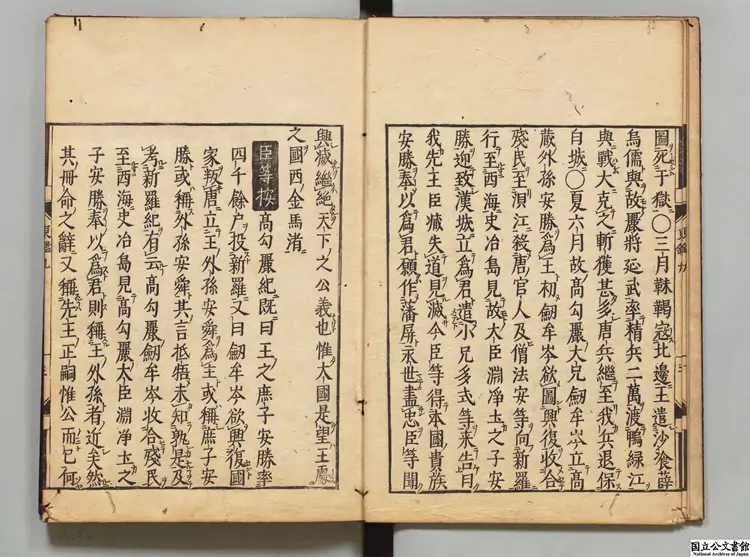 圖死于獄○三月靺鞨寇北邊王遣沙飡薛
烏儒與故高勾麗將延武率精兵二萬渡鴨綠江
與戰大克之斬獲甚多唐兵繼至我兵退保
白城○夏六月故高勾麗大兄劒牟岑立高
蔵外孫安勝爲王初劒牟岑欲圖興復收合
殘民至浿江殺唐官人及僧法安等向新羅
行至西海史冶島見故大臣淵净玉之子安
勝迎致漢城立爲君遣小兄多式等来告曰
我先王臣臧失道見滅今臣等得本國貴族
安勝奉以爲君願作藩屏永世盡忠臣等聞
興滅継絶天下之公義也惟大國是望王處
之國西金馬渚
臣等按高勾麗紀既曰王之庶子安勝率
四千餘户投新羅又曰劒牟岑欲興復國
家叛唐立王外孫安舜爲主或稱庶子安
勝或稱外孫安舜其言抵牾未知孰是及
考新羅紀有云高勾麗劒牟岑收合殘民
至西海史冶島見高勾麗大臣淵净玉之
子安勝奉以爲君則稱王外孫者近矣然
其冊命之辭又稱先王正嗣惟公而已何
東鑑九
國立公文書館
National Archives of Japan